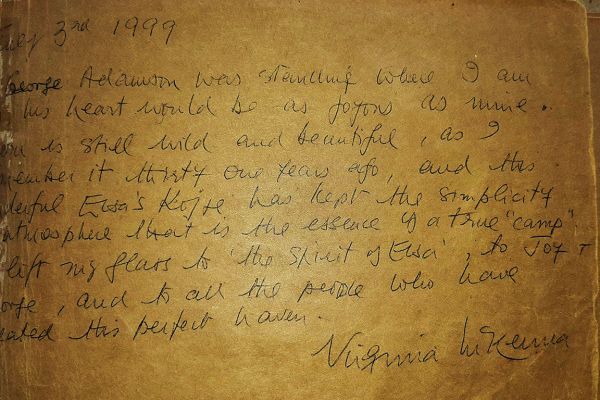 3rd 1999
George Adamson was standing where I am
his heart would be as joyous as mine.
is still wild and beautiful, as I
member it thirty one years ago, and this
derful Elsa's Kopje has kept the simplicity
atmosphere that is the essence of a true "camp".
lift my glass to 'the Spirit of Elsa', to Joy +
orge, and to all the people who have
eated this perfect haven.
Virginia McKenna